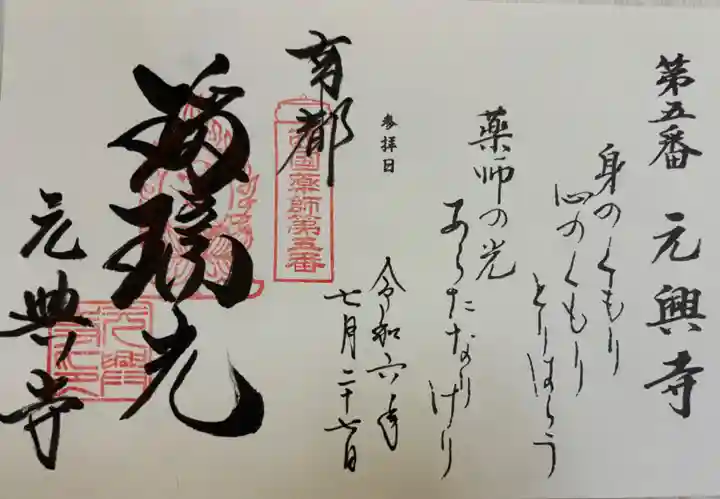 第五番 元興寺
身のくもり
心のくもり
とりはらう
薬師の光
あらたなり
けり
参拝日
令和六年
七月二十七日
南都
瑠璃光
元興寺
西国薬師第五番